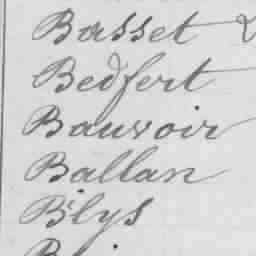 Basset
Bedfert
Bauvoir
Ballan
Bilys